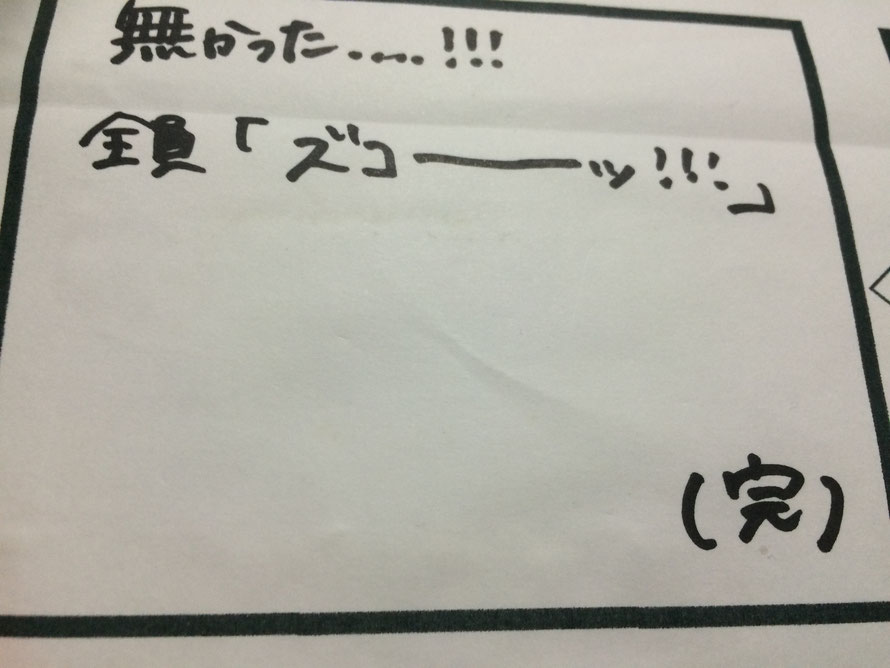 無かった.....!!!
全員「ズコーーッ!!!」
(完)